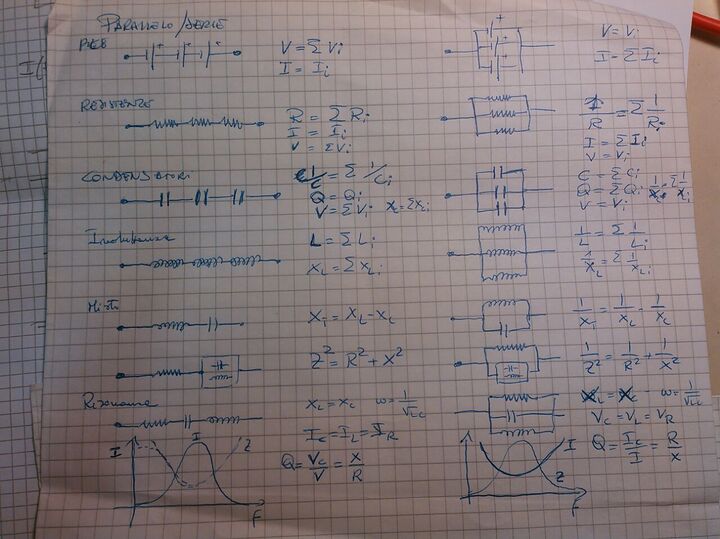 PARALLELO/SERIE
V = Σ Vi
I = Ii
V = Vi
I = Σ Ii
RESISTENZE
R = Σ Ri
I = Ii
V = ΣVi
1/R = Σ 1/Ri
I = Σ Ii
V = Vi
CONDENSATORI
1/C = Σ 1/Ci
Q = Qi
V = Σ Vi Xc = ΣXci
C = Σ Ci
Q = Σ Qi 1/Xc = Σ 1/Xi
V = Vi
Induttanze
L = Σ Li
XL = Σ XLi
1/L = Σ 1/Li
1/XL = Σ 1/XLi
Misti
XT = XL - XC
1/XT = 1/XL - 1/XC
Z² = R² + X²
1/Z² = 1/R² + 1/X²
Risonanza
XL = XC ω = 1/√LC
IC = IL = IR
Q = VC/V = X/R
XL = XC ω = 1/√LC
VC = VL = VR
Q = IC/I = R/X
I
I
Z
F
I
Z
F